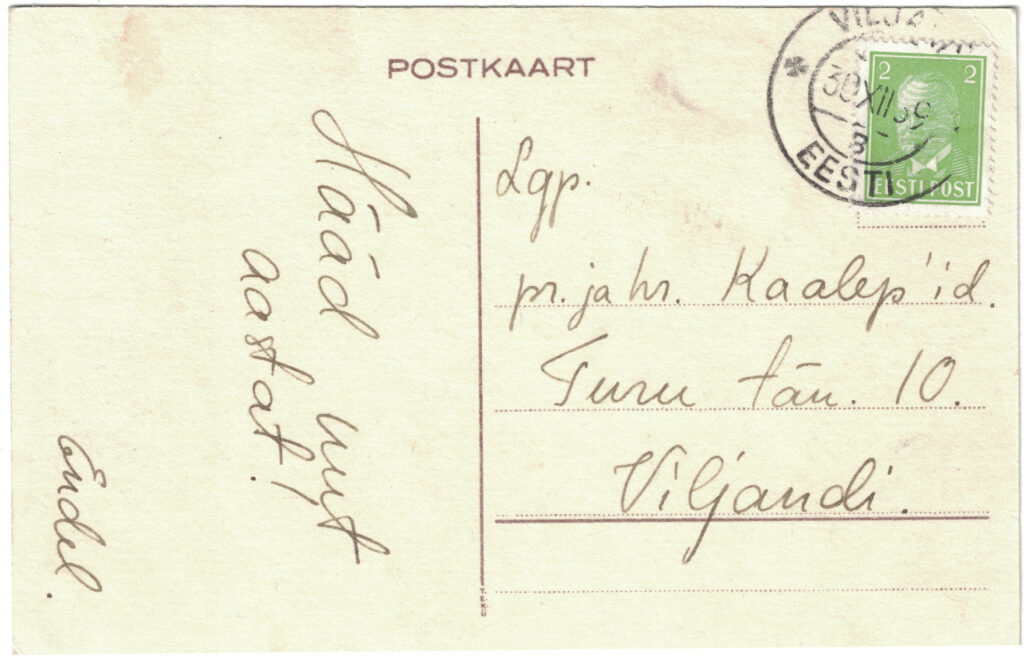 POSTKAART
Hääd uut
aastat!
Endel.
Lgp.
pr. ja hr. Kaalep'id.
Turu tän. 10.
Viljandi.
30 XII 39
EESTI
2 2
EESTI POST